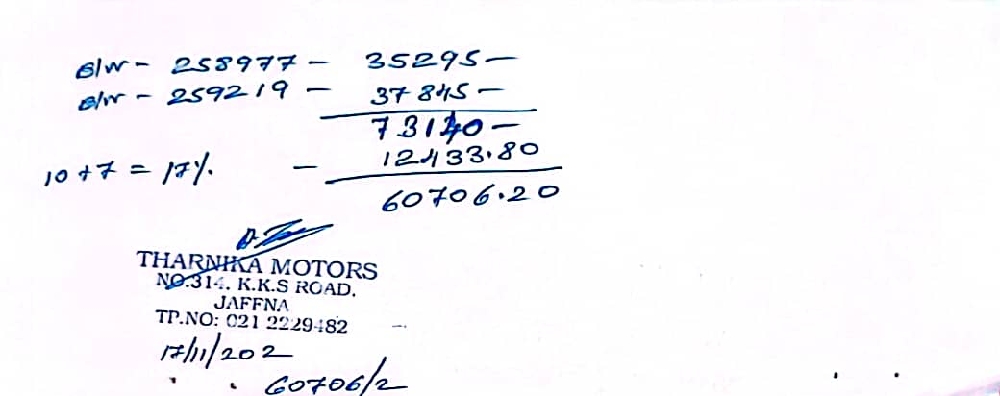 B/W - 258977 - 35295 -
B/W - 259219 - 37845 -
73140 -
10 + 7 = 17%. - 12433.80
60706.20
THARNIKA MOTORS
NO.314, K.K.S ROAD,
JAFFNA
TP.NO: 021 2229482
17/11/202
60706/2